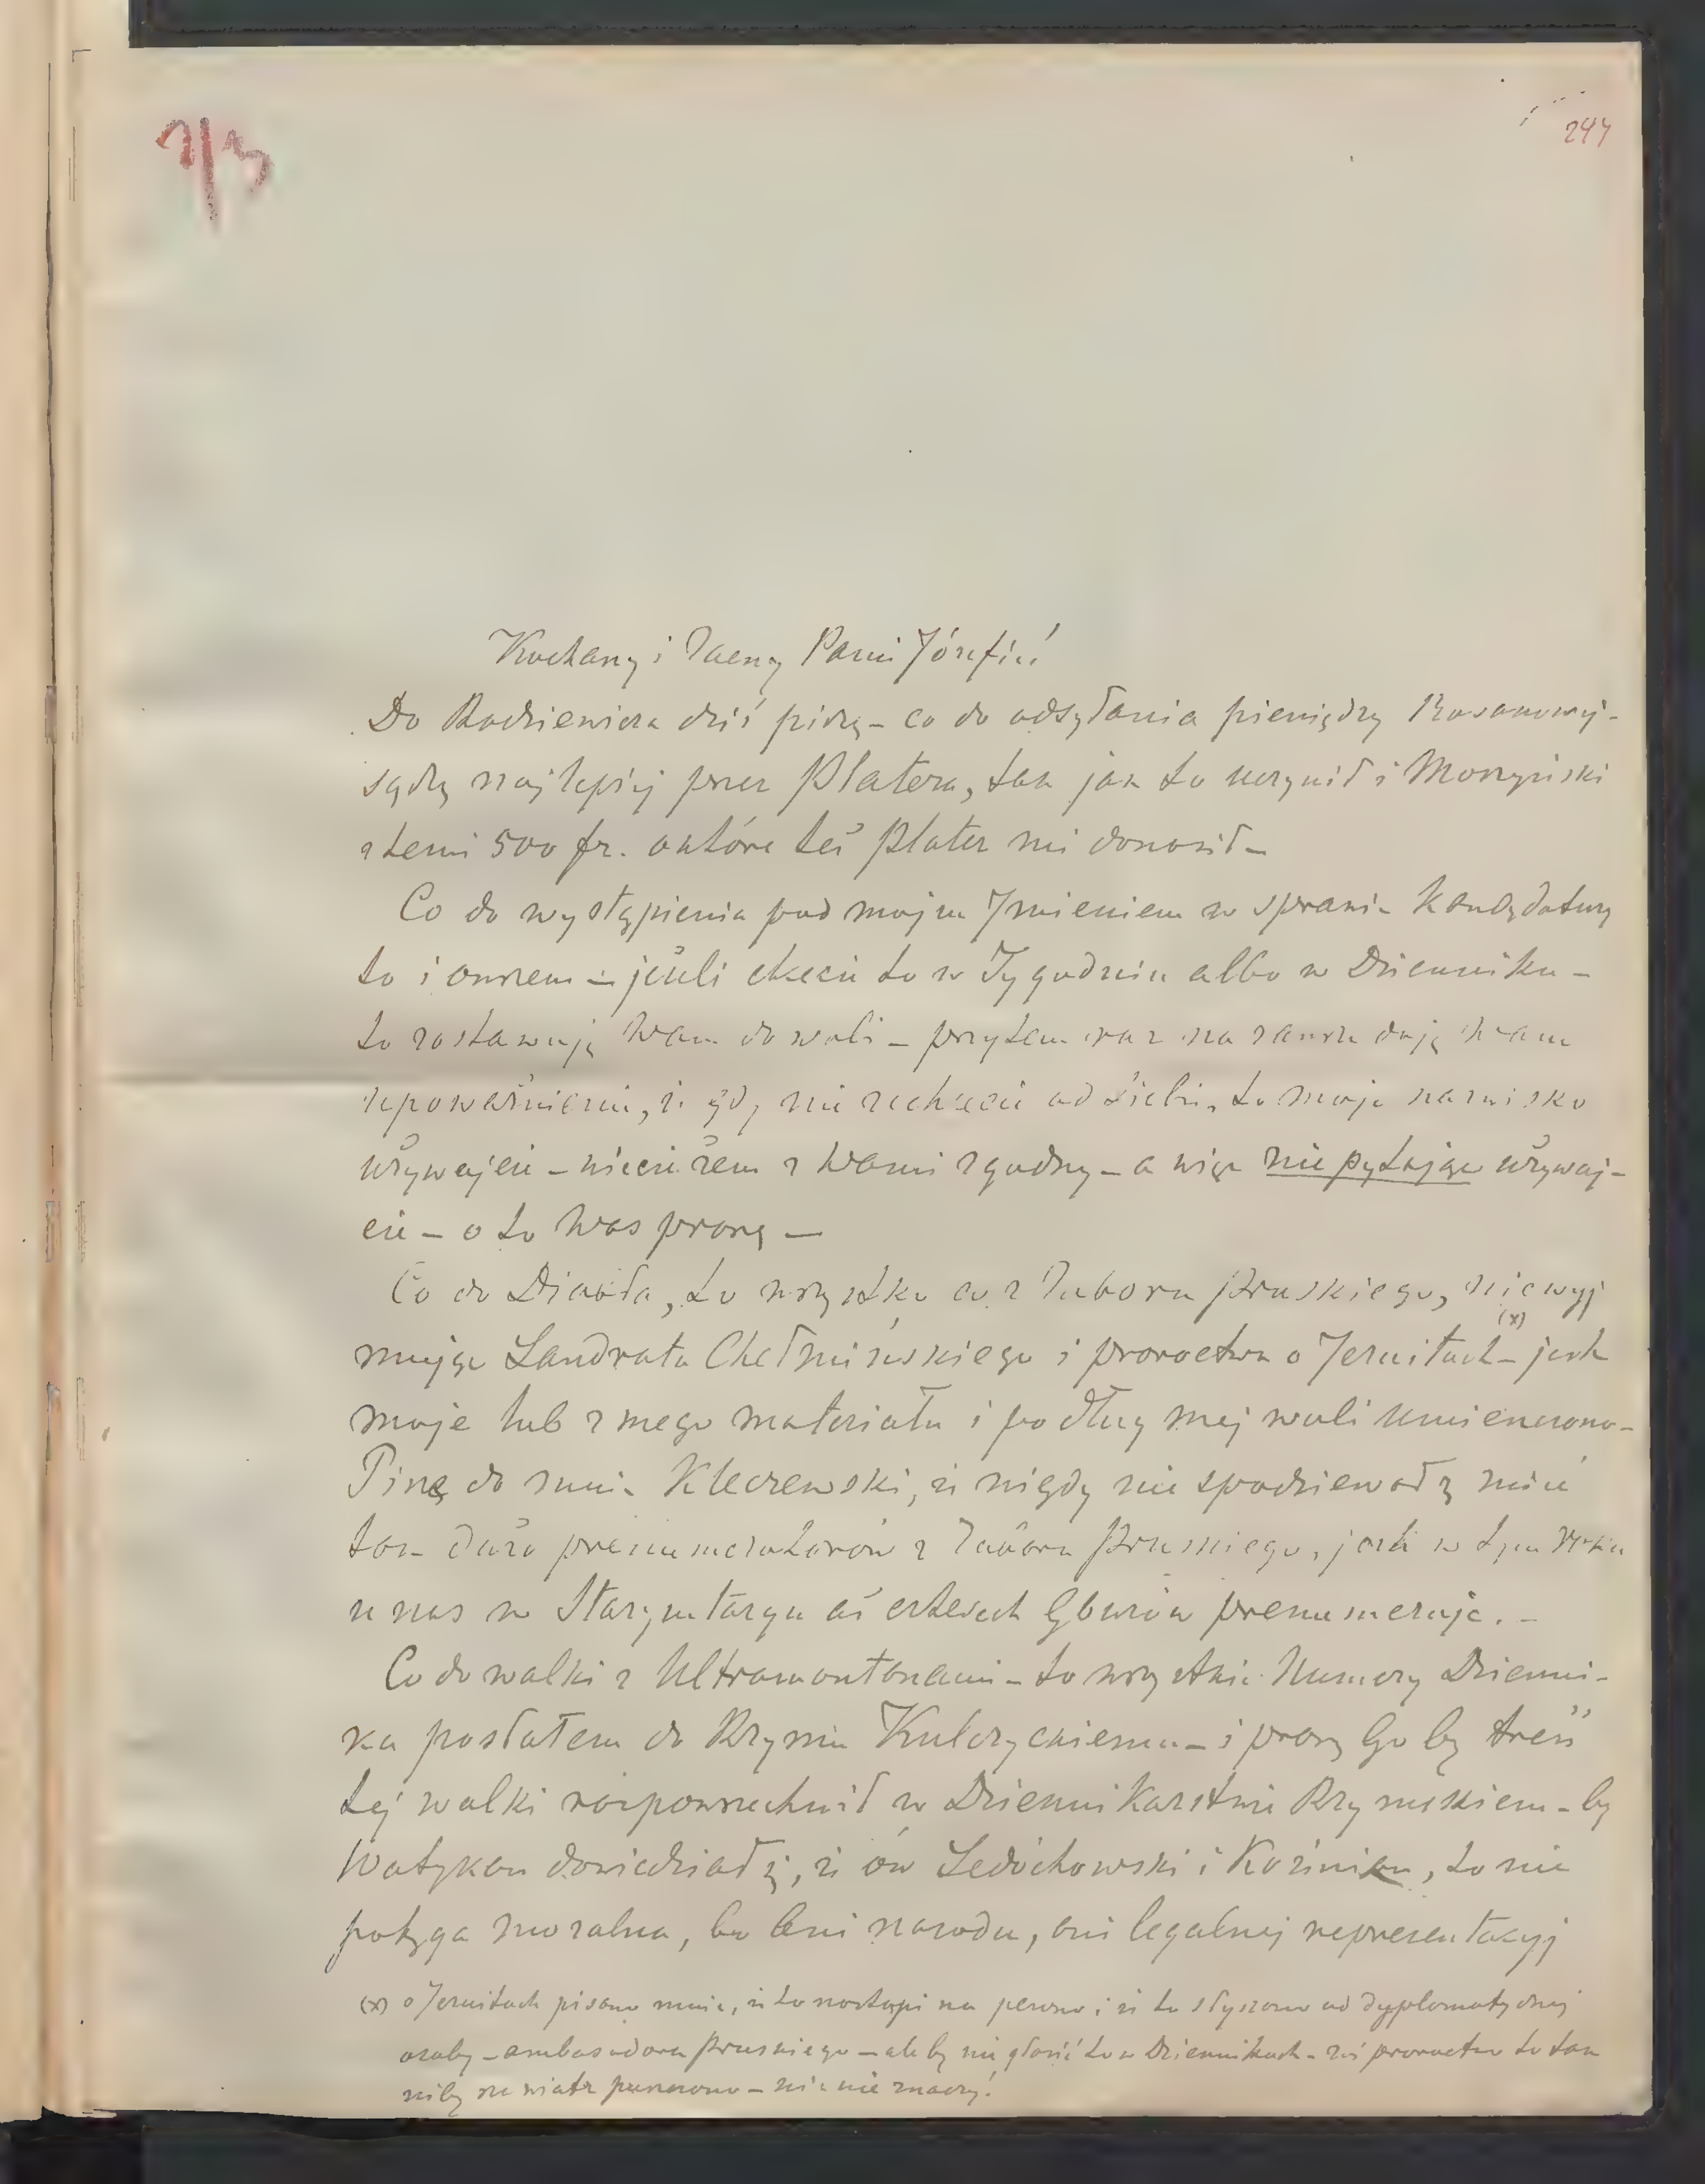 7/3
244
Kochany i Zacny Panie Józefie!
Do Radziewicza dziś piszę – co do odsyłania pieniędzy
sądzę najlepiej przez Platera, tak jak to uczynił i Moszyński
z temi 500 fr. o które też Plater mi donosił –
Co do wystąpienia pod mojem Imieniem w sprawie Kandydatury
to i owszem – jeżeli chcecie to w Tygodniu albo w Dzienniku –
to zostawuję Wam do woli – przytem raz na zawsze daję Wam
upoważnienie, że gdy nie zechcecie od siebie, to moje nazwisko
używajcie – wiecie żem z Wami zgodny – a więc nie pytając używaj-
cie – o to Was proszę –
Co do Djabła, to wszystko co z Zaboru pruskiego, niewyj
mując Landrata Chełmińskiego i proroctwa o Jezuitach (x) – jest
moje lub z mego materiału i podług mej woli umieszczono –
Pisze do mnie Kleczewski, iż nigdy nie spodziewał się mieć
tak dużo prenumeratorów z Zaboru pruskiego, jest w tym roku
u nas w Starymtargu aż czterech Gburów prenumeruje. –
Co do walki z Ultramontanami – to wszystkie Numery Dzienni-
ka posłałem do Rzymu Kulczyckiemu – i proszę Go by treść
tej walki rozpowszechnił w Dziennikarstwie Rzymskiem – by
Watykan dowiedział się, iż ów Ledóchowski i Koźmian, to nie
potęga moralna, bo ani narodu, ani legalnej reprezentacyj
(x) o Jezuitach pisano mnie, iż to nastąpi na pewno i iż to słyszano od dyplomatycznej
osoby – ambasadora pruskiego – ale by nie głosić to w Dziennikach – zaś proroctwo to tak
niby na wiatr puszczono – nic nie znaczy!